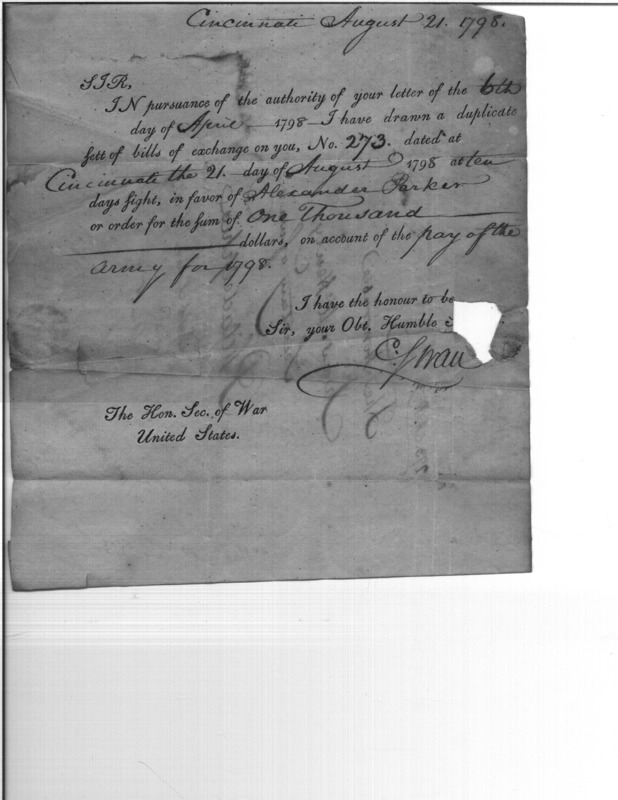 Cincinnati August 21. 1798.
SIR,
IN pursuance of the authority of your letter of the 6th
day of April 1798 I have drawn a duplicate
sett of bills of exchange on you, No. 273. dated at
Cincinnati the 21. day of August 1798 at ten
days sight, in favor of Alexander Parker
or order for the sum of One Thousand
dollars, on account of the pay of the
army for 1798.
I have the honour to be
Sir, your Obt. Humble S
C. Swan
The Hon. Sec. of War
United States.